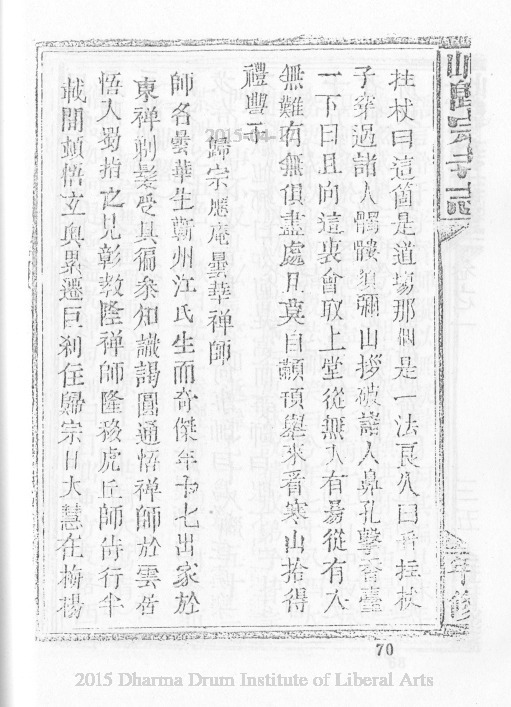 拄杖曰這箇是道場那個是一法良久曰看拄杖
子穿過諸人髑髏須彌山拶破諸人鼻孔擊香臺
一下曰且向這裏會取上堂從無入有易從有入
無難有無俱盡處且莫自顢頇舉來看寒山拾得
禮豐干
歸宗應庵曇華禪師
師名曇華生蘄州江氏生而奇傑年十七出家於
東禪剃髮受具徧參知識謁圓通悟禪師於雲居
悟入蜀指之見彰教隆禪師隆移虎丘師侍行半
載開頓悟立輿累遷巨剎住歸宗日大慧在梅楊
70
2015 Dharma Drum Institute of Liberal Arts